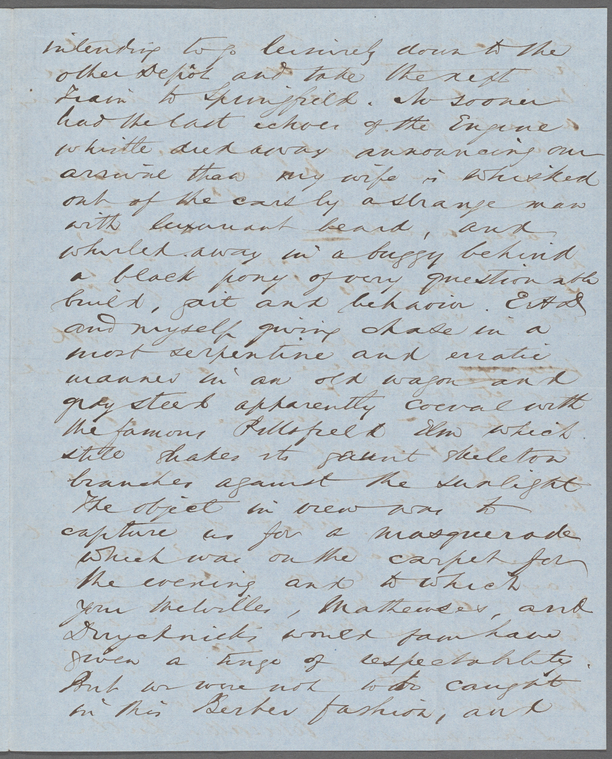 intending to go leisurely down to the
other Depôt and take the next
Train to Springfield. No sooner
had the last echoes of the Engine
whistle died away announcing our
arrival than my wife is whisked
out of the cars by a strange man
with luxuriant beard, and
whirled away in a buggy behind
a black pony of very questionable
build, gait and behavior. E A D
and myself giving chase in a
most serpentine and erratic
manner in an old wagon and
gray steed apparently coeval with
the famous Pittsfield Elm which
still shakes its gaunt skeleton
branches against the sunlight
The object in view was to
capture us for a masquerade
which was on the carpet for
the evening and to which
you Melvilles, Mathewses, and
Duyckincks would fain have
given a tinge of respectability.
But we were not to be caught
in this Berber fashion, and